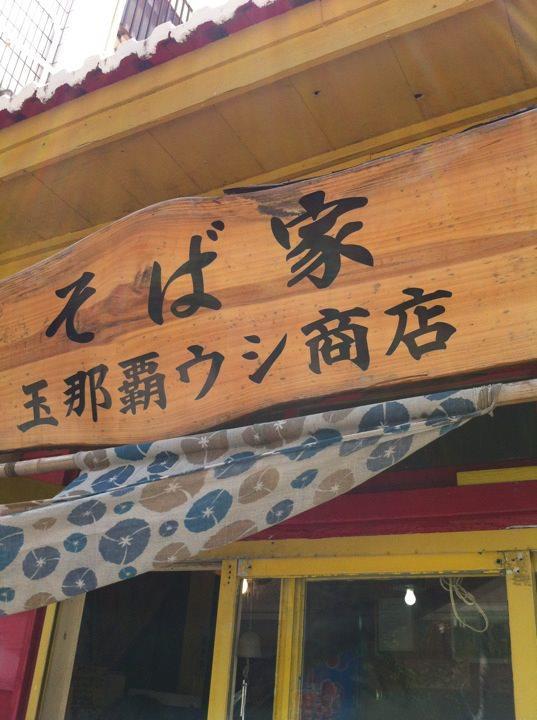 そば家
玉那覇ウシ商店